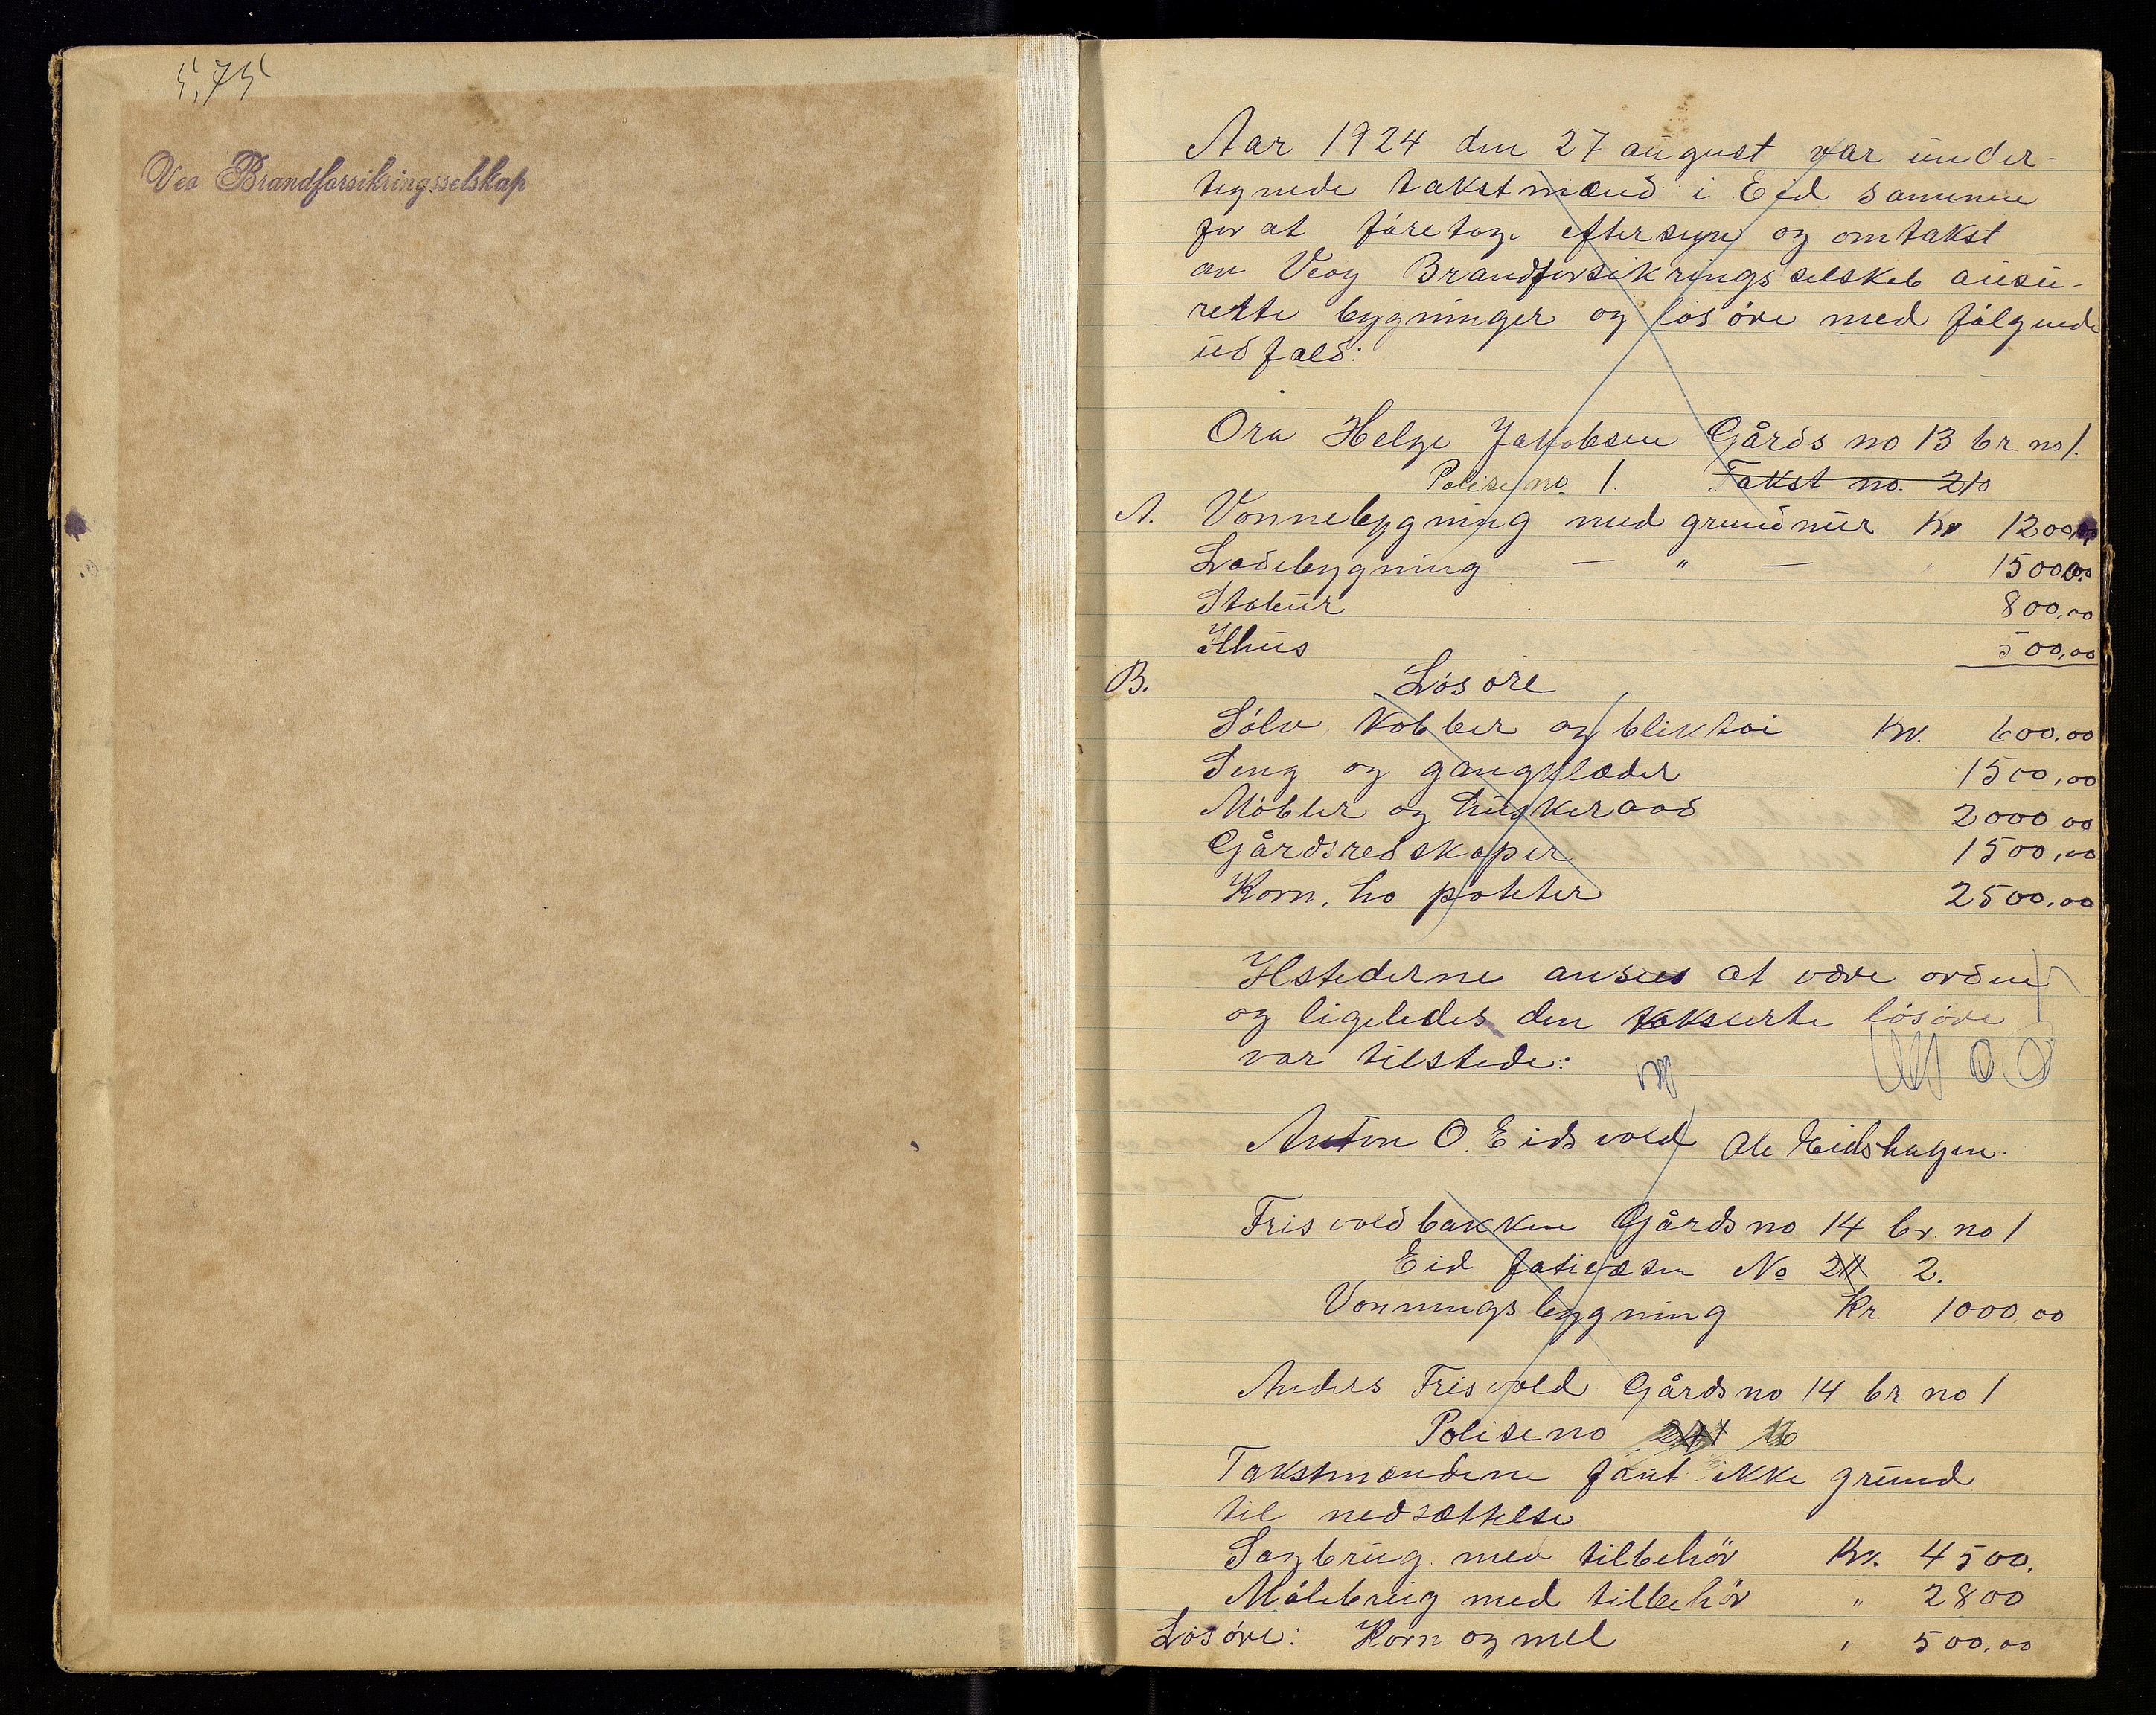 5,75
Veø Brandforsikringsselskap
Aar 1924 den 27 august var under-
tegnede takstmænd i Eid sammen
for at føretage eftersyn og omtakst
av Veøy Brandforsikringsselskab assu-
rerte bygninger og løsøre med følgende
udfald:
Ora Helge Jakobsen Gårds no 13 br. no 1.
Polise no. 1. Takst no. 210
A. Vonnebygning med grundmur Kr 1200,00
Ladebygning — " — 1500,00
Stabur 800,00
Ilhus 500,00
B. Løsøre
Sølv Kobber og bliktøi Kr. 600,00
Seng og gangklæder 1500,00
Møbler og huskeraad 2000 00
Gårdsredskaper 1500,00
Korn, ho poteter 2500,00
Ilstederne ansees at være orden
og ligeledes den takserte løsøre
var tilstede:
Anton O. Eidsvold Ole Eidshagen.
Frisvoldbakken Gårdsno 14 br. no 1
Eid No 211 2.
Vonningsbygning Kr. 1000,00
Anders Frisvold Gårdsno 14 br no 1
Polise no
Takstmændene fant ikke grund
til nedsættelse
Sagbrug med tilbehör Kr. 4500.
Mölebrug med tilbehör " 2800
Løsøre: Korn og mel " 500,00